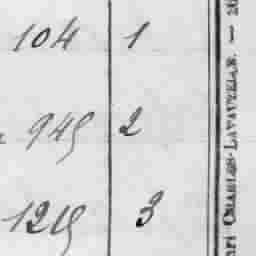 104 1
945 2
1215 3
nri CHARLES-LAVAUZELLE. —